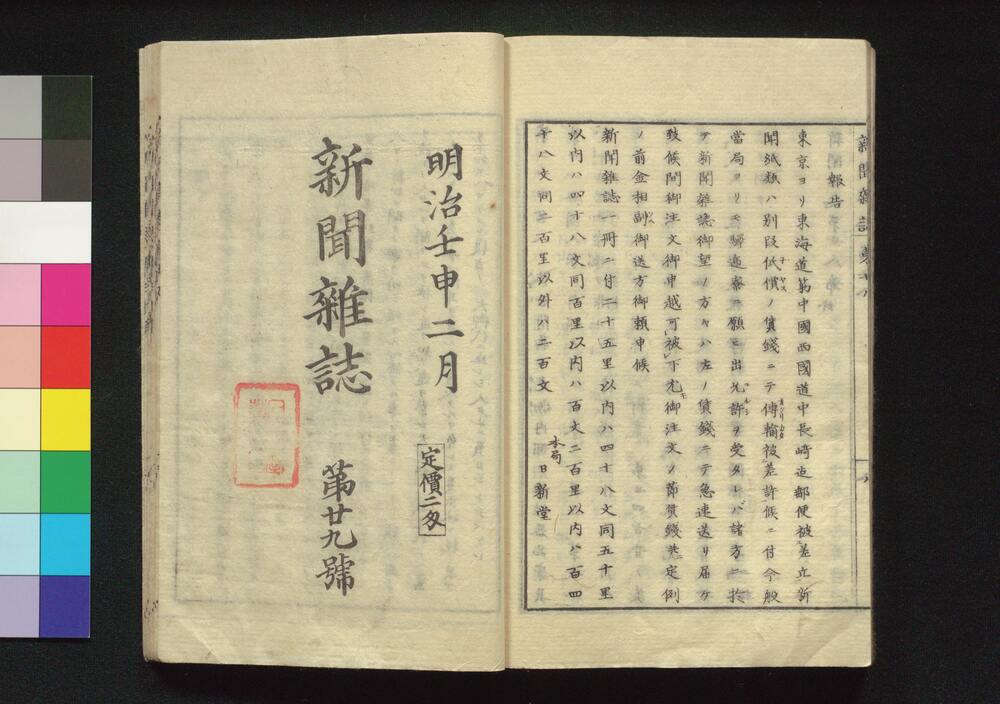 新聞雜誌
新聞報告
東京ヨリ東海道筋中國西國道中長崎迄郵便被差立新
聞紙類ハ別段低價ノ賃錢ニテ傳輸被差許候ニ付今般
當局ヨリモ驛遞寮ニ願ヒ出允許ヲ受タレバ諸方ニ於
テ新聞雜誌御望ノ方々ハ左ノ賃錢ニテ急速送リ届ケ
致候間御注文御申越可被下尤御注文ノ節賃錢共定例
ノ前金相副御送方御頼申候
新聞雜誌一冊ニ付二十五里以内ハ四十八文同五十里
以内ハ四十八文同百里以内ハ百文二百里以内ハ百四
十八文同二百里以外ハ二百文
本局 日新堂
明治壬申二月
定價二匁
新聞雜誌 第廿九號